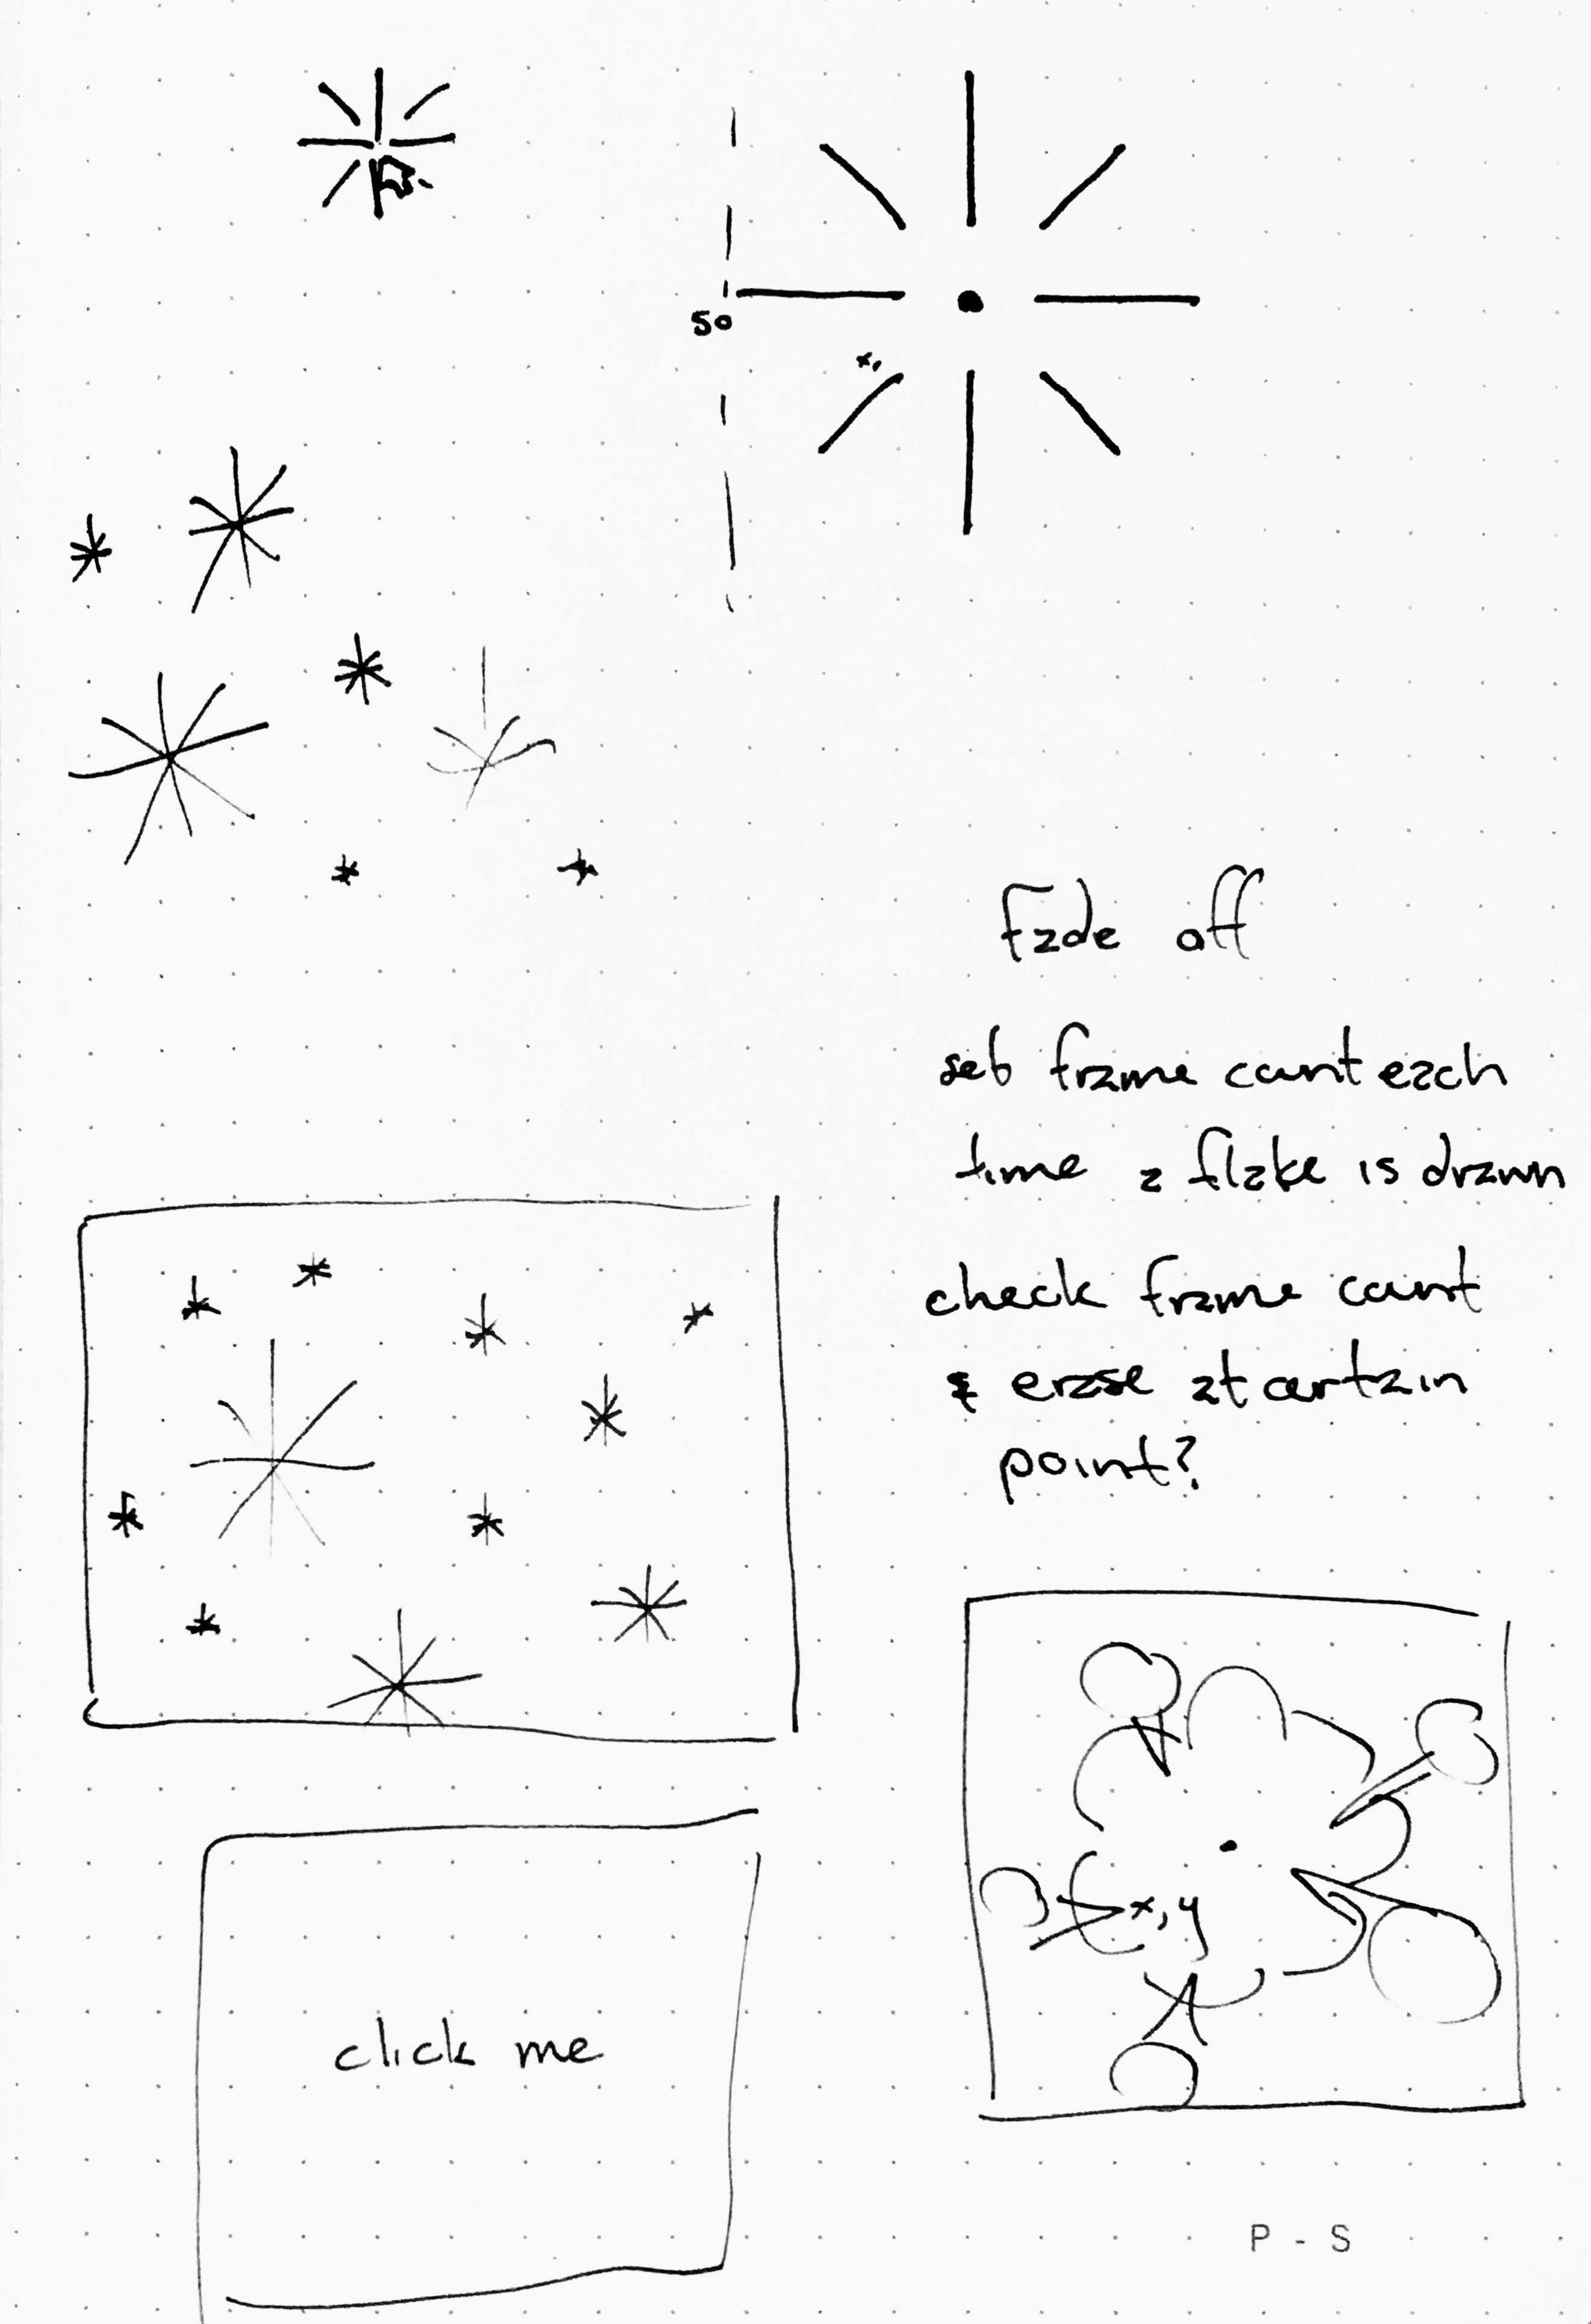 50
x,
Fade off
set frame count each
time a flake is drawn
check frame count
& erase at certain
point?
x, y
click me
P - S